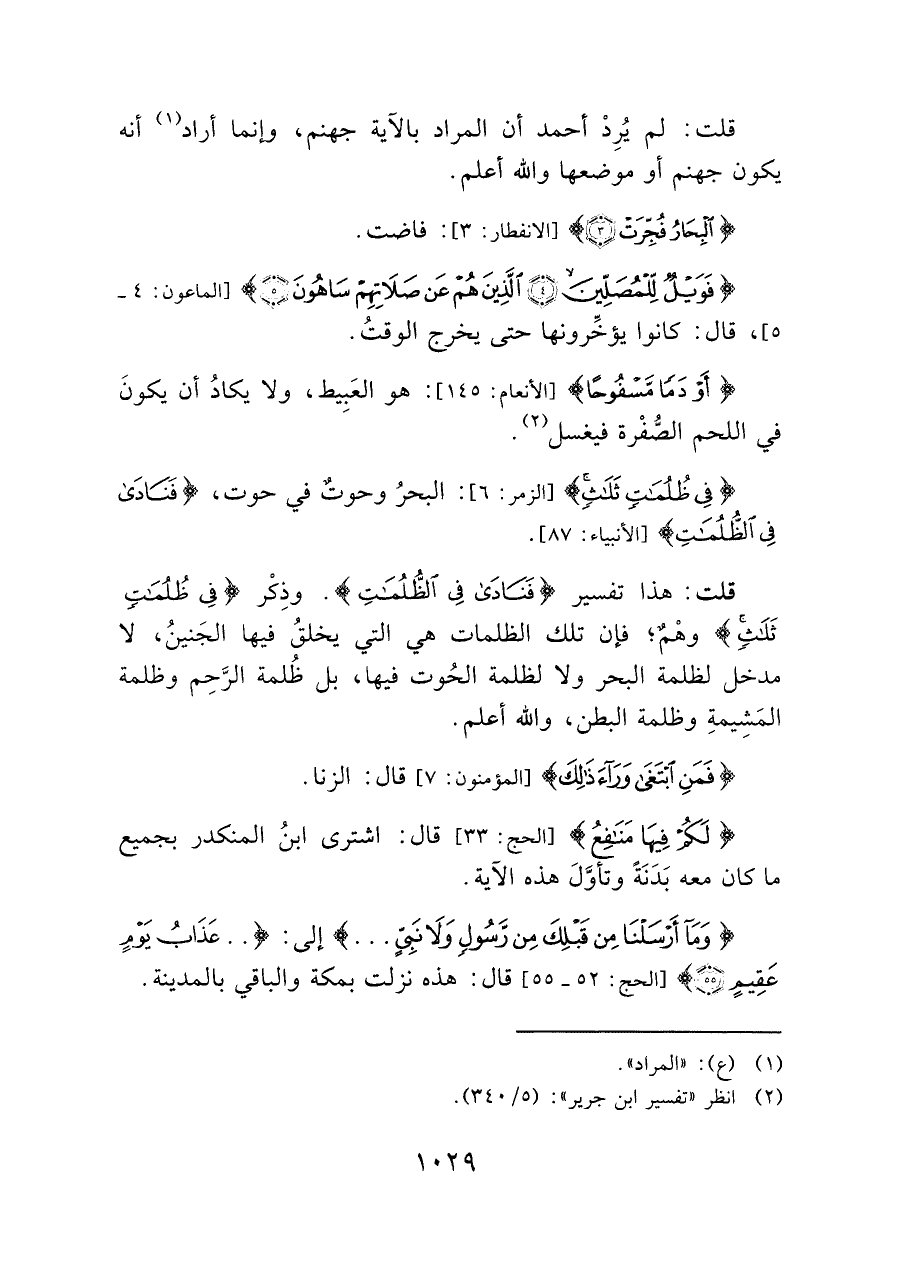 قلت: لم يُرِدْ أحمد أن المراد بالآية جهنم، وإنما أراد(١) أنه
يكون جهنم أو موضعها والله أعلم.
﴿ ٱلْبِحَارُ فُجِّرَتْ ٣﴾ [الانفطار: ٣]: فاضت.
﴿ فَوَيْلٌ لِّلْمُصَلِّينَۙ ٤ ٱلَّذِينَ هُمْ عَن صَلَاتِهِمْ سَاهُونَ ٥﴾ [الماعون: ٤ ـ
٥]، قال: كانوا يؤخِّرونها حتى يخرج الوقتُ.
﴿ أَوْ دَمًا مَّسْفُوحًا﴾ [الأنعام: ١٤٥]: هو العَبِيط، ولا يكادُ أن يكونَ
في اللحم الصُّفْرة فيغسل(٢).
﴿ فِى ظُلُمَٰتٍ ثَلَٰثٍۚ﴾ [الزمر: ٦]: البحرُ وحوتٌ في حوت، ﴿ فَنَادَىٰ
فِى ٱلظُّلُمَٰتِ﴾ [الأنبياء: ٨٧].
قلت: هذا تفسير ﴿ فَنَادَىٰ فِى ٱلظُّلُمَٰتِ ﴾. وذِكْر ﴿ فِى ظُلُمَٰتٍ
ثَلَٰثٍۚ ﴾ وهْمٌ؛ فإن تلك الظلمات هي التي يخلقُ فيها الجَنينُ، لا
مدخل لظلمة البحر ولا لظلمة الحُوت فيها، بل ظُلمة الرَّحِم وظلمة
المَشِيمةِ وظلمة البطن، والله أعلم.
﴿ فَمَنِ ٱبْتَغَىٰ وَرَآءَ ذَٰلِكَ﴾ [المؤمنون: ٧] قال: الزنا.
﴿ لَكُمْ فِيهَا مَنَٰفِعُ ﴾ [الحج: ٣٣] قال: اشترى ابنُ المنكدر بجميع
ما كان معه بَدَنَةً وتأوَّلَ هذه الآية.
﴿ وَمَآ أَرْسَلْنَا مِن قَبْلِكَ مِن رَّسُولٍ وَلَا نَبِىٍّ ...﴾ إلى: ﴿.. عَذَابُ يَوْمٍ
عَقِيمٍ ٥٥﴾ [الحج: ٥٢ ـ ٥٥] قال: هذه نزلت بمكة والباقي بالمدينة.
(١) (ع): «المراد».
(٢) انظر «تفسير ابن جرير»: (٥/ ٣٤٠).
١٠٢٩